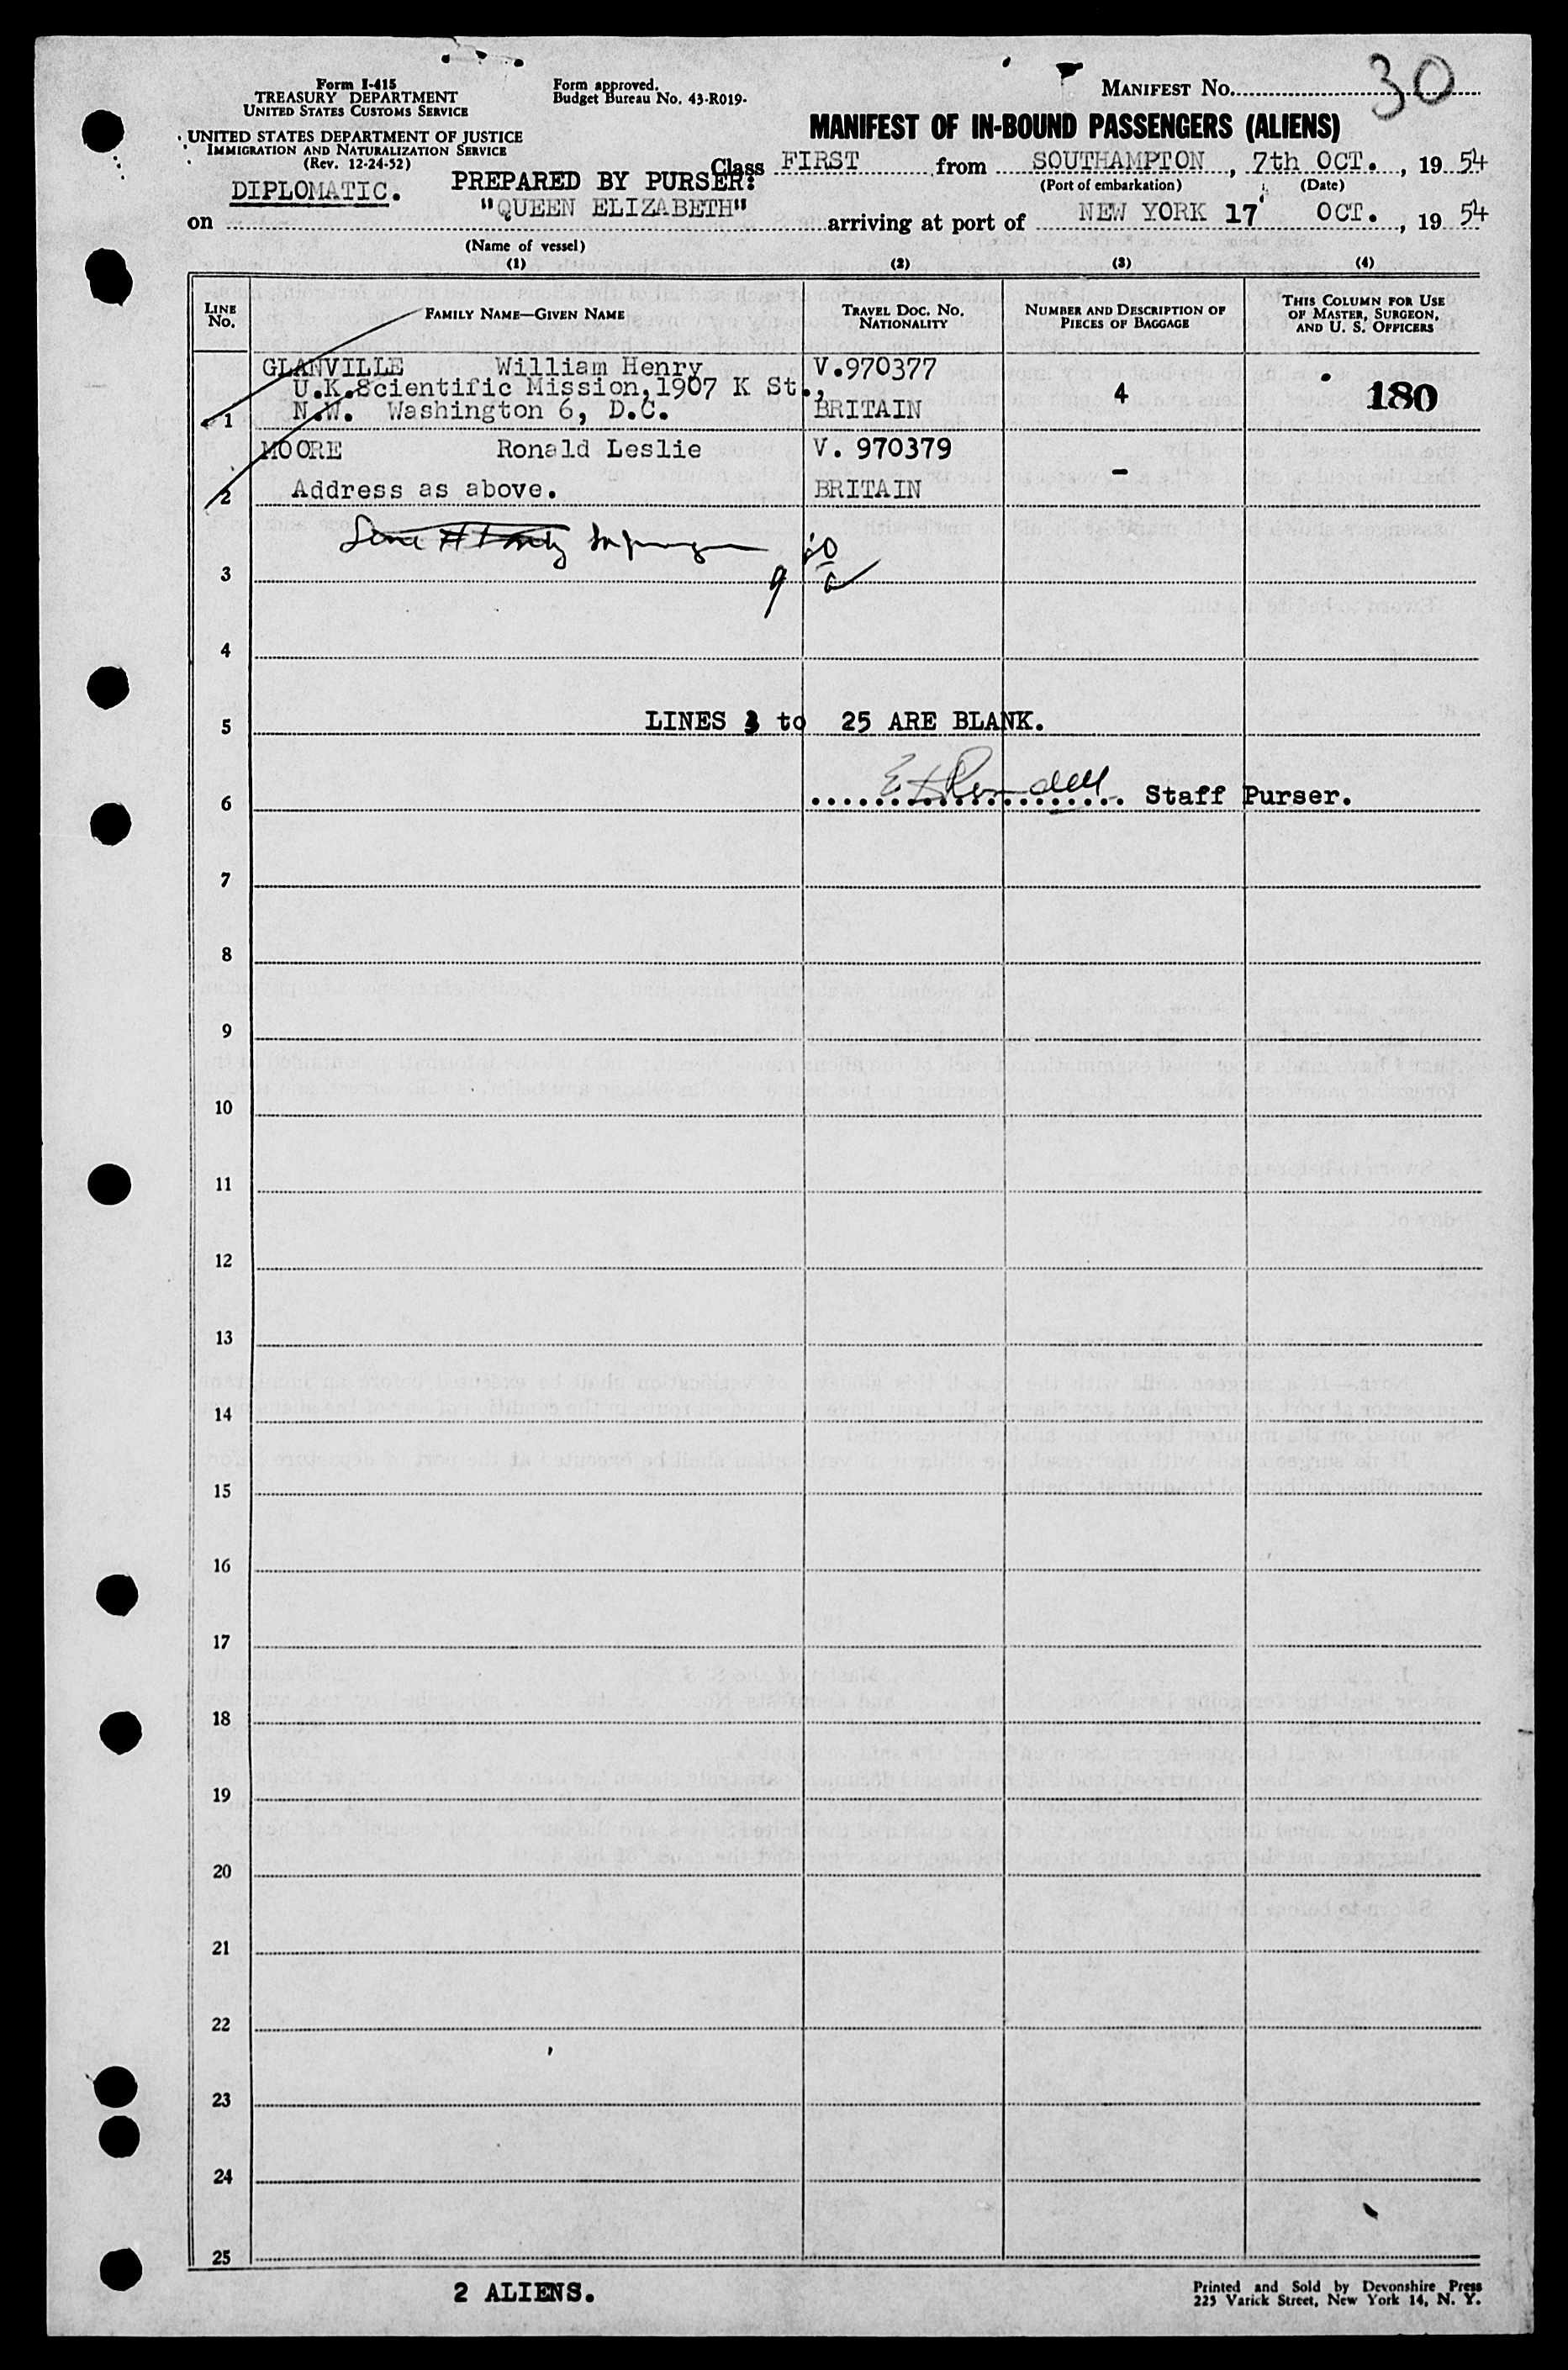 Form I-415
TREASURY DEPARTMENT
UNITED STATES CUSTOMS SERVICE
UNITED STATES DEPARTMENT OF JUSTICE
IMMIGRATION AND NATURALIZATION SERVICE
(Rev. 12-24-52)
Form approved.
Budget Bureau No. 43-R019-
MANIFEST NO. 30
MANIFEST OF IN-BOUND PASSENGERS (ALIENS)
DIPLOMATIC. PREPARED BY PURSER:
Class FIRST from SOUTHAMPTON, 7th OCT., 1954
(Port of embarkation) (Date)
on "QUEEN ELIZABETH" arriving at port of NEW YORK 17 OCT., 1954
(Name of vessel)
(1) (2) (3) (4)
LINE No. FAMILY NAME—GIVEN NAME TRAVEL DOC. NO. NATIONALITY NUMBER AND DESCRIPTION OF PIECES OF BAGGAGE THIS COLUMN FOR USE OF MASTER, SURGEON, AND U. S. OFFICERS
GLANVILLE William Henry V.970377
U.K.Scientific Mission,1907 K St., 4 180
1 N.W. Washington 6, D.C. BRITAIN
MOORE Ronald Leslie V. 970379 -
2 Address as above. BRITAIN
3
4
5 LINES 3 to 25 ARE BLANK.
6 Staff Purser.
7
8
9
10
11
12
13
14
15
16
17
18
19
20
21
22
23
24
25
2 ALIENS.
Printed and Sold by Devonshire Press
225 Varick Street, New York 14, N. Y.